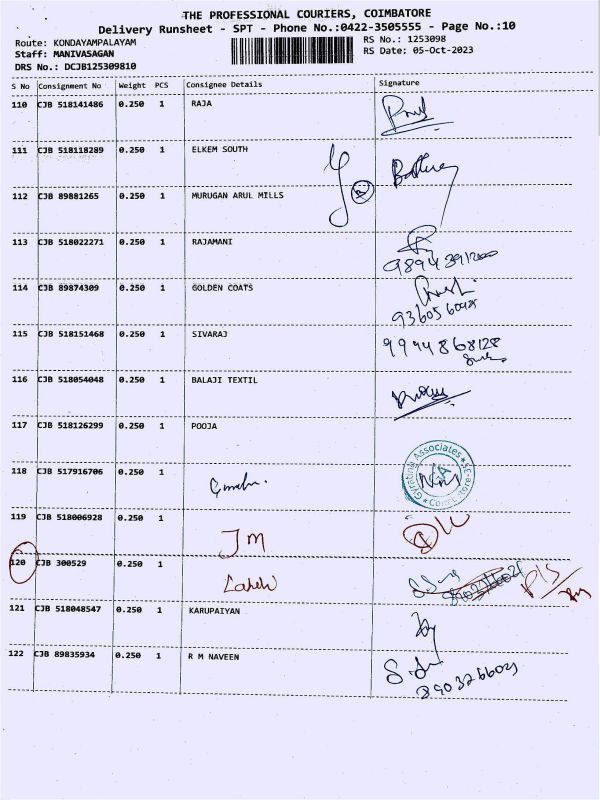 THE PROFESSIONAL COURIERS, COIMBATORE
Delivery Runsheet - SPT - Phone No.:0422-3505555 - Page No.:10
Route: KONDAYAMPALAYAM
RS No.: 1253098
Staff: MANIVASAGAN
RS Date: 05-Oct-2023
DRS No.: DCJB125309810
S No Consignment No Weight PCS Consignee Details Signature
110 CJB 518141486 0.250 1 RAJA
111 CJB 518118289 0.250 1 ELKEM SOUTH
112 CJB 89881265 0.250 1 MURUGAN ARUL MILLS
113 CJB 518022271 0.250 1 RAJAMANI
114 CJB 89874309 0.250 1 GOLDEN COATS
115 CJB 518151468 0.250 1 SIVARAJ
9944868128
116 CJB 518054048 0.250 1 BALAJI TEXTIL
117 CJB 518126299 0.250 1 POOJA
Gyrating Associates
GA
118 CJB 517916706 0.250 1
119 CJB 518006928 0.250 1
JM
120 CJB 300529 0.250 1
121 CJB 518048547 0.250 1 KARUPAIYAN
122 CJB 89835934 0.250 1 R M NAVEEN